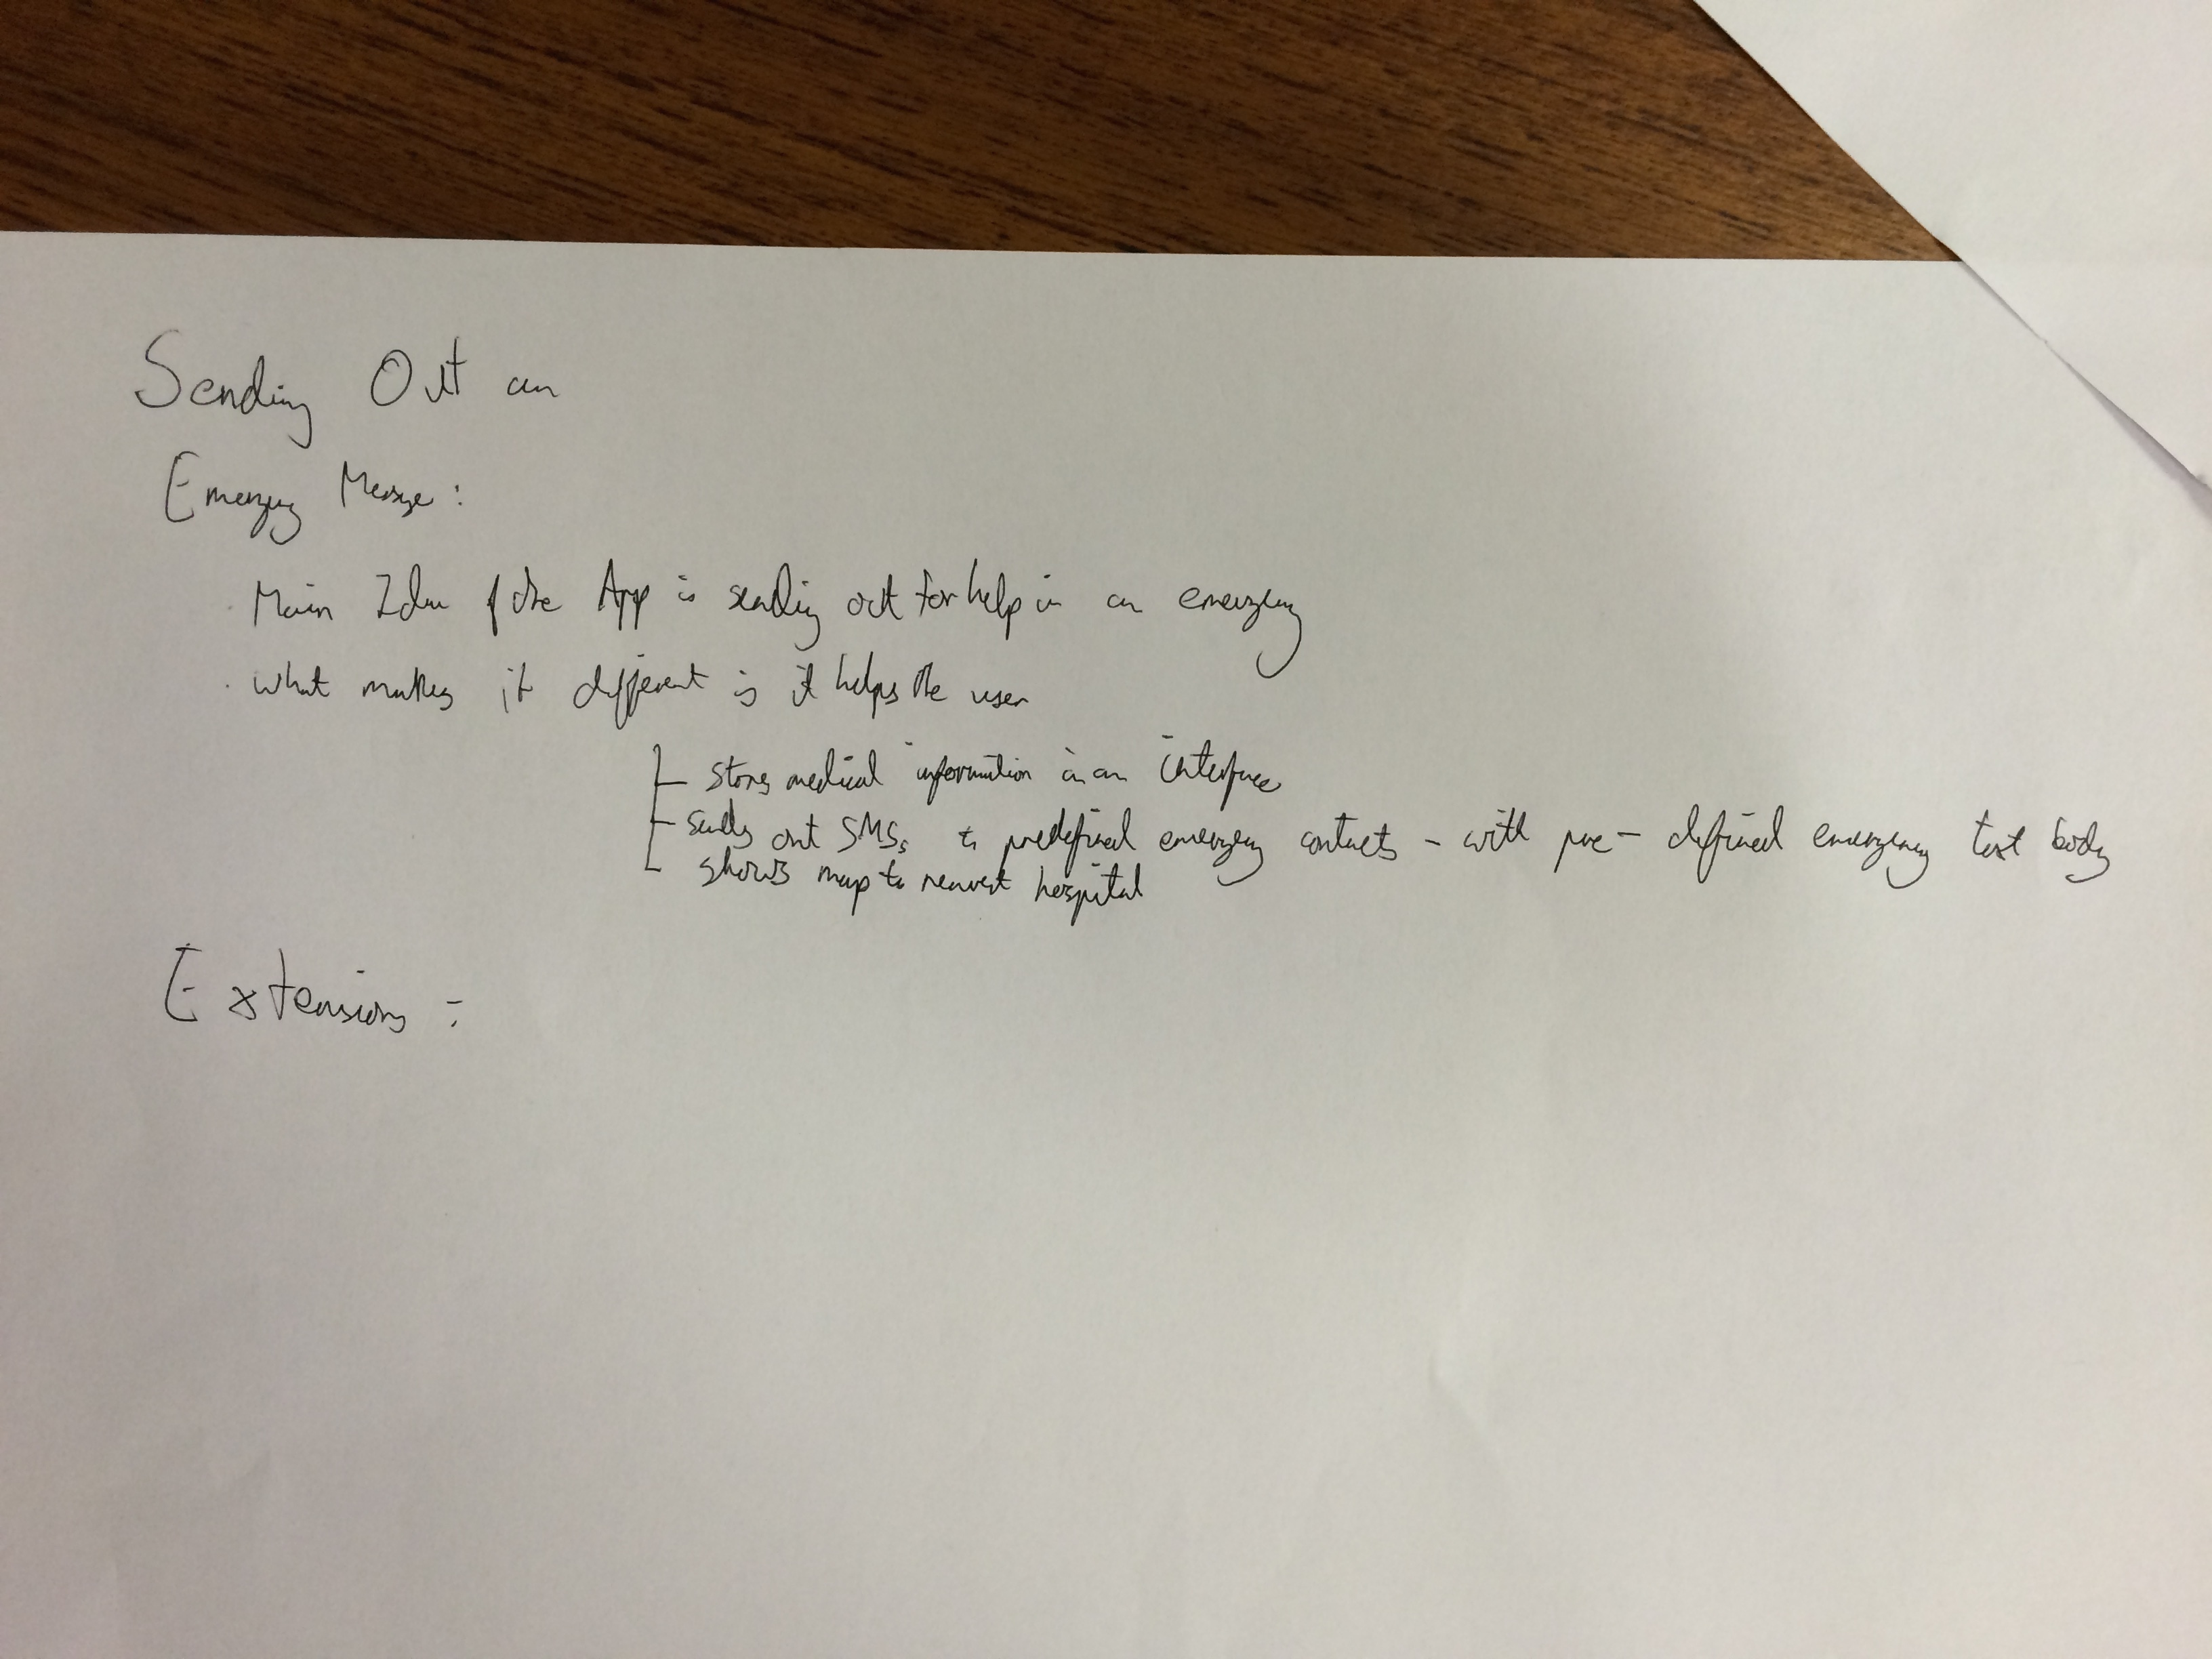 Sending Out an
Emergency Message :
· Main Idea of the App is sending out for help in an emergency
· what makes it different is it helps the user
- stores medical information in an interface
- sends out SMSs to predefined emergency contacts - with pre-defined emergency text body
- shows map to nearest hospital
Extensions :